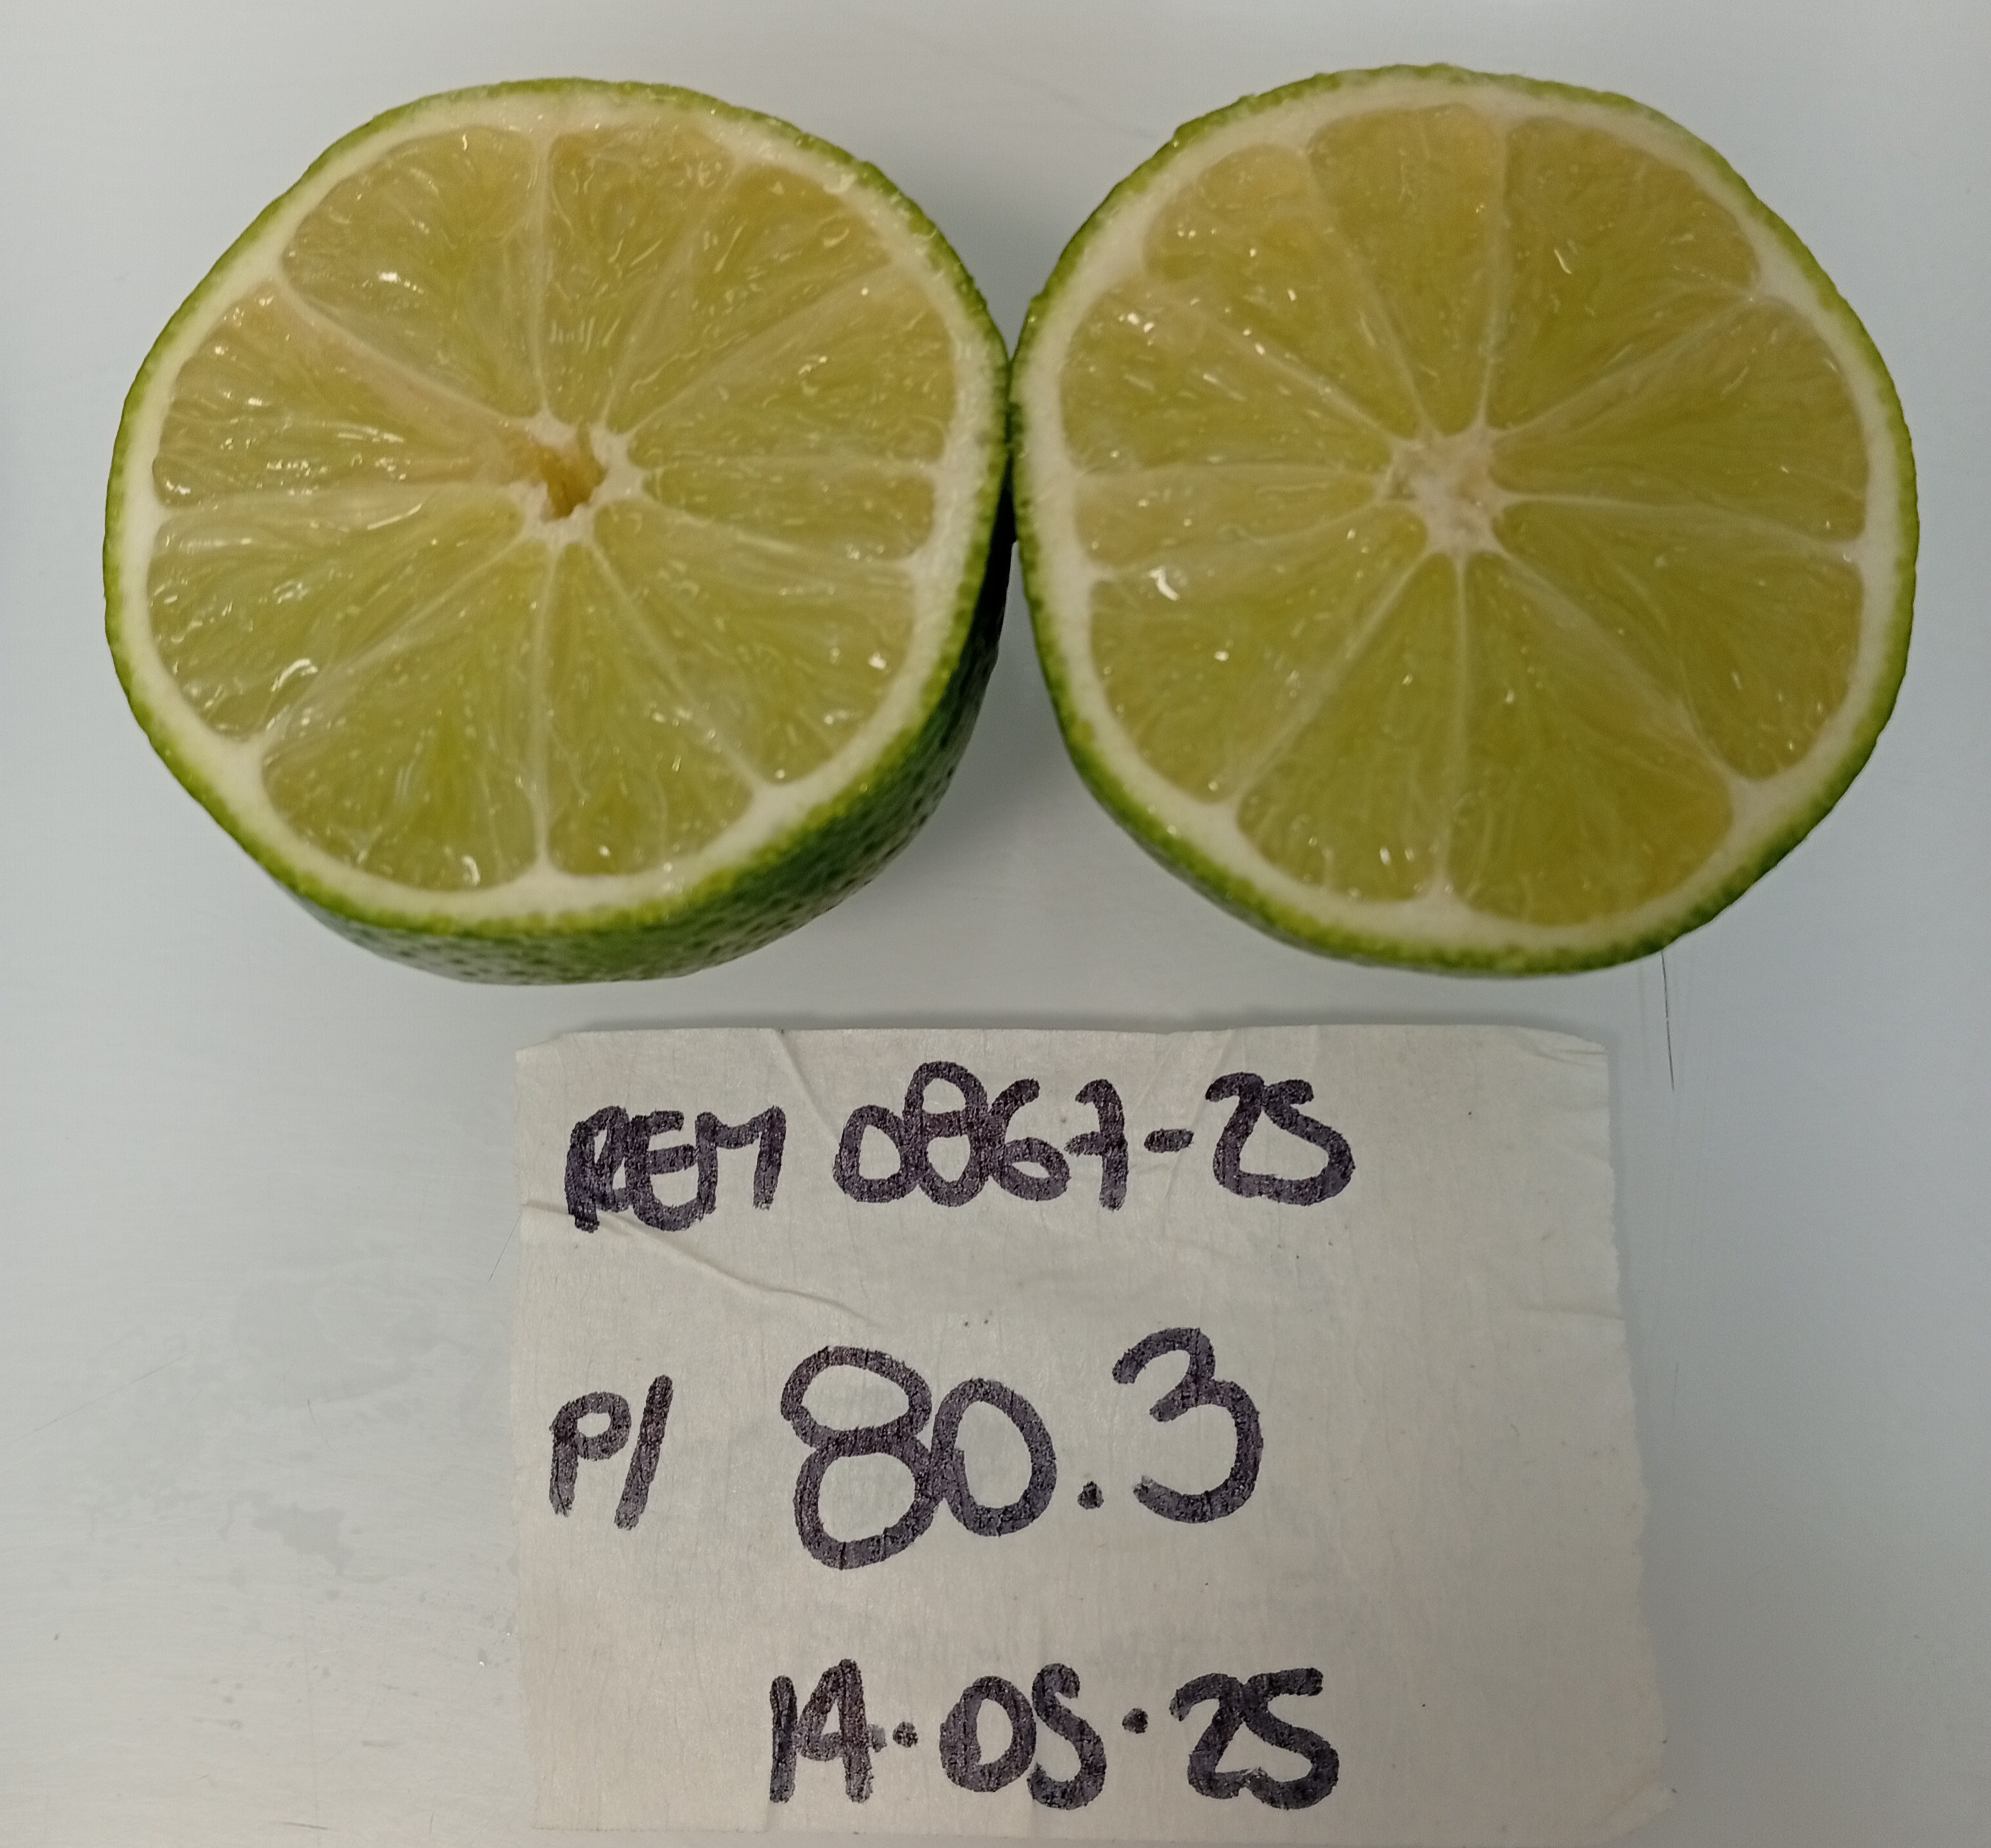 REM 0867-25
P/ 80.3
14.05.25